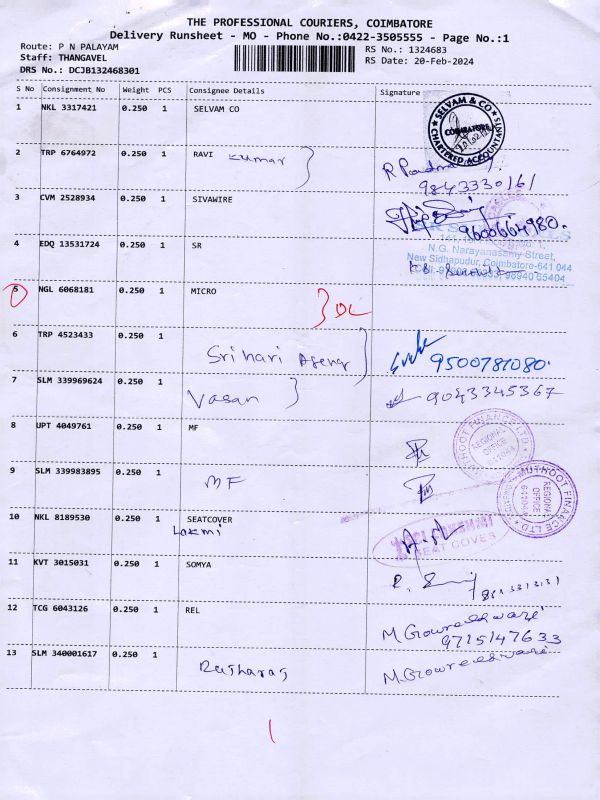 THE PROFESSIONAL COURIERS, COIMBATORE
Delivery Runsheet - MO - Phone No.:0422-3505555 - Page No.:1
Route: P N PALAYAM
Staff: THANGAVEL
DRS No.: DCJB132468301
RS No.: 1324683
RS Date: 20-Feb-2024
S No Consignment No Weight PCS Consignee Details Signature
1 NKL 3317421 0.250 1 SELVAM CO
SELVAM & CO
COIMBATORE
CHARTERED ACCOUNTANTS
2 TRP 6764972 0.250 1 RAVI Kumar
9843330161
3 CVM 2528934 0.250 1 SIVAWIRE
9600664980.
4 EDQ 13531724 0.250 1 SR
N.G. Narayanasamy Street,
New Sidhapudur, Coimbatore-641 044
5 NGL 6068181 0.250 1 MICRO DL
6 TRP 4523433 0.250 1
Srihari 9500781080.
7 SLM 339969624 0.250 1
Vasan 9043345367
8 UPT 4049761 0.250 1 MF
MUTHOOT FINANCE LTD
REGIONAL OFFICE
9 SLM 339983895 0.250 1
MF
MUTHOOT FINANCE LTD
REGIONAL OFFICE
641044
10 NKL 8189530 0.250 1 SEATCOVER
Laxmi
SEAT COVER
11 KVT 3015031 0.250 1 SOMYA
12 TCG 6043126 0.250 1 REL
M. Gowreeshwari
9715147633
13 SLM 340001617 0.250 1
M. Gowreeshwari